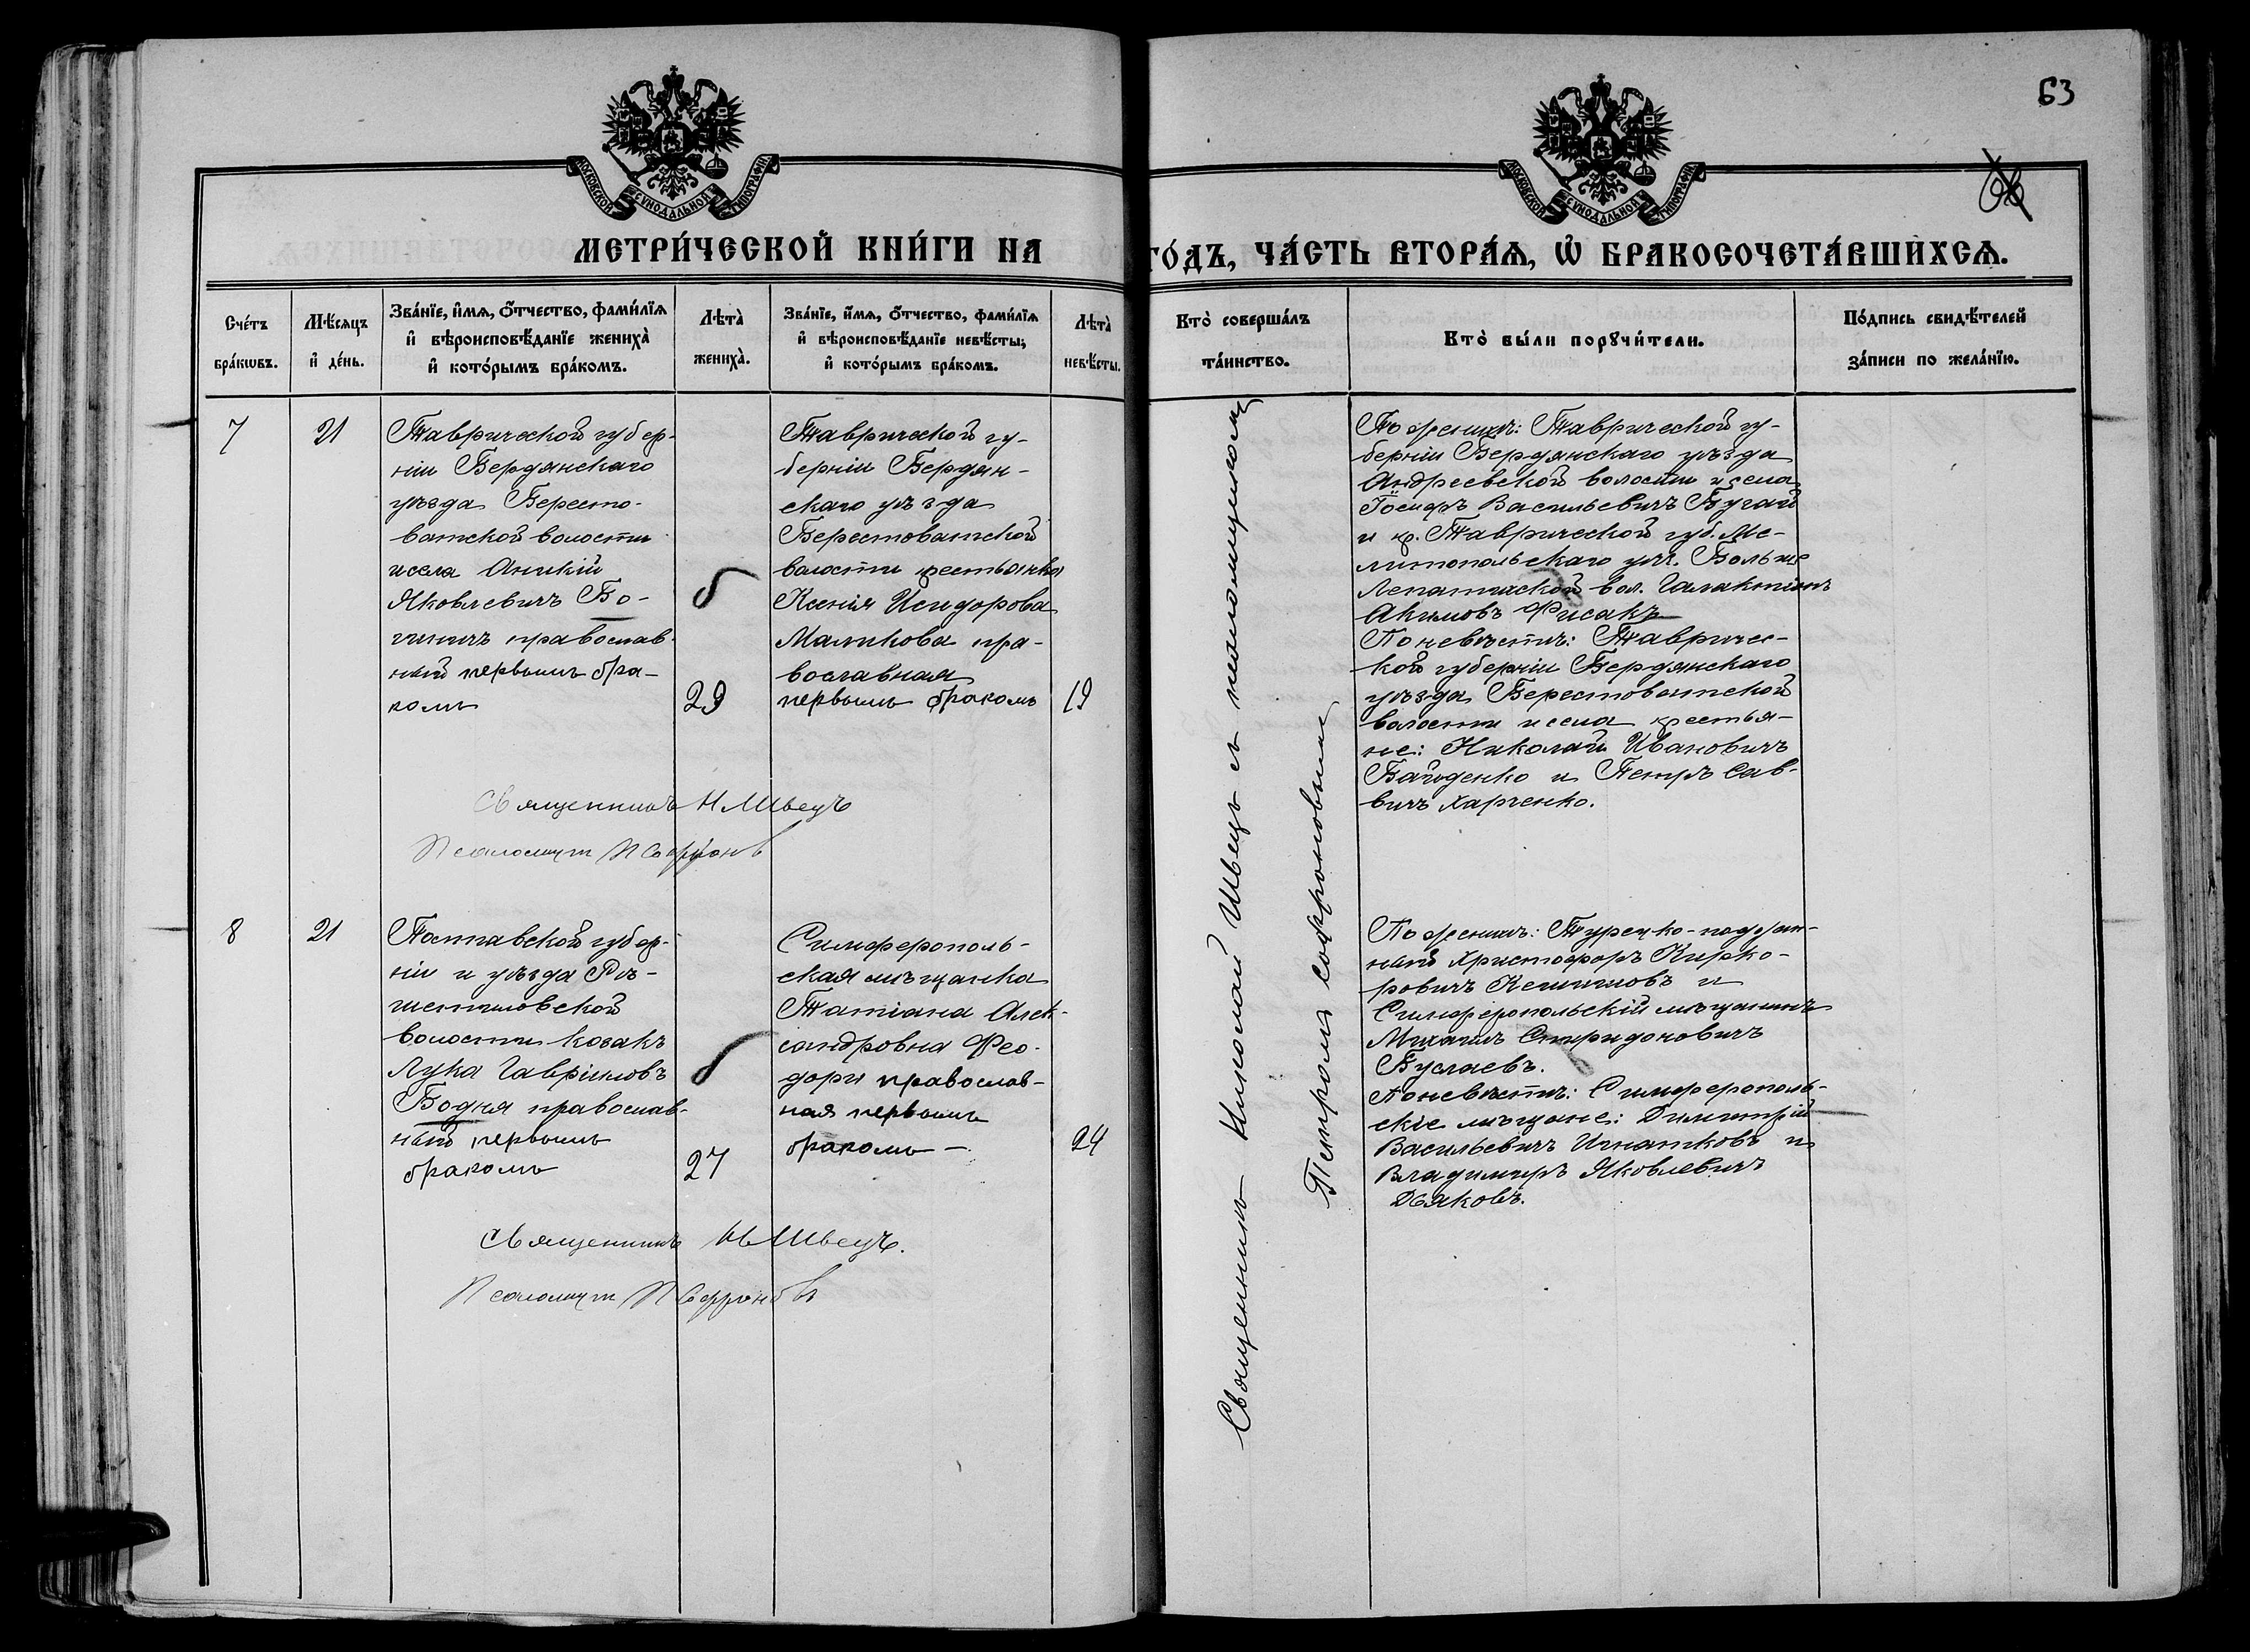 63
МОСКОВСКОЙ СѴНОДАЛЬНОЙ ТИПОГРАФІИ
МОСКОВСКОЙ СѴНОДАЛЬНОЙ ТИПОГРАФІИ
МЕТРИ́ЧЕСКОЙ КНИ́ГИ НА ГО́ДЪ, ЧА́СТЬ ВТОРА́Ѧ, Ѿ БРАКОСОЧЕТА́ВШИХСѦ.
Сче́тъ
бра́кѡвъ.
Мѣ́сѧцъ
и҆ де́нь.
Зва́нїе, и҆́мѧ, ѻ҆́тчество, фами́лїѧ
и҆ вѣроисповѣ́данїе жениха̀
и҆ кото́рымъ бра́комъ.
Лѣта̀
жениха̀.
Зва́нїе, и҆́мѧ, ѻ҆́тчество, фами́лїѧ
и҆ вѣроисповѣ́данїе невѣ́сты,
и҆ кото́рымъ бра́комъ.
Лѣта̀
невѣ́сты.
Кто̀ соверша́лъ
та́инство.
Кто̀ бы́ли порꙋчи́тели.
По́дпись свидѣ́телей
за́писи по жела́нїю.
7
21
Таврической губер-
ніи Бердянскаго
уѣзда Бересто-
ватской волости
и села Аникій
Яковлевичъ Бо-
православ-
ный первымъ бра-
комъ
29
Таврической гу-
берніи Бердян-
скаго уѣзда
Берестоватской
волости крестьянка
Ксенія Исидорова
Маликова пра-
вославная
первымъ бракомъ
19
Священникъ Николай Швецъ съ псаломщикомъ
Петромъ Софроновымъ
По женихѣ: Таврической гу-
берніи Бердянскаго уѣзда
Андреевской волости и села
Іосифъ Васильевичъ Бугай
и кр. Таврической губ. Ме-
литопольскаго у. Больше
Лепатихской вол. Галактіонъ
Акимовъ Фисакъ
По невѣстѣ: Тавричес-
кой губерніи Бердянскаго
уѣзда Берестоватской
волости и села крестья-
не: Николай Ивановичъ
и Петръ Сав-
вичъ Харченко.
Священникъ Н Швецъ
Псаломщ П Софронов
8
21
Полтавской губер-
ніи и уѣзда Рѣ-
шетиловской
волости козакъ
Лука Гавріиловъ
Бодня православ-
ный первымъ
бракомъ
27
Симферополь-
ская мѣщанка
Татіана Алек-
сандровна Фео-
дори православ-
ная первымъ
бракомъ –
24
По женихѣ: Турецко-поддан-
ный Христофоръ Кирко-
ровичъ и
Симферопольскій мѣщанинъ
Михаилъ Спиридоновичъ
Буслаевъ.
По невѣстѣ: Симферополь-
скіе мѣщане: Димитрій
Васильевичъ Игнатковъ и
Владимиръ Яковлевичъ
Дьяковъ.
Священникъ Н Швецъ.
Псаломщ П Софроновъ